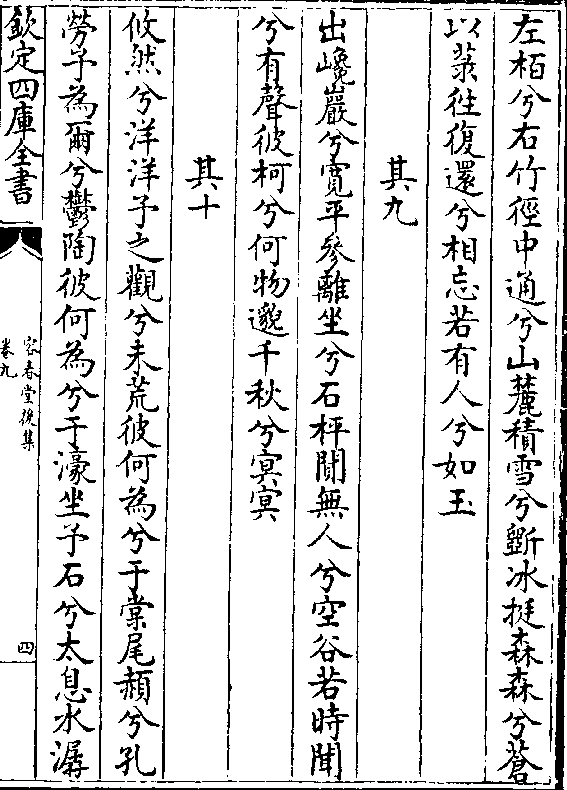 左栢兮右竹徑中通兮山麓積雪兮斷冰挺森森兮蒼
以蒃徃復還兮相忘若有人兮如玉
其九
出巉巖兮寛平參離坐兮石枰閴無人兮空谷若時聞
兮有聲彼柯兮何物邈千秋兮㝠㝠
其十
攸然兮洋洋予之觀兮未荒彼何為兮于棠尾赬兮孔
勞予為爾兮鬱陶彼何為兮于濠坐予石兮太息水潺
欽定四庫全書
容春堂後集
卷九
四